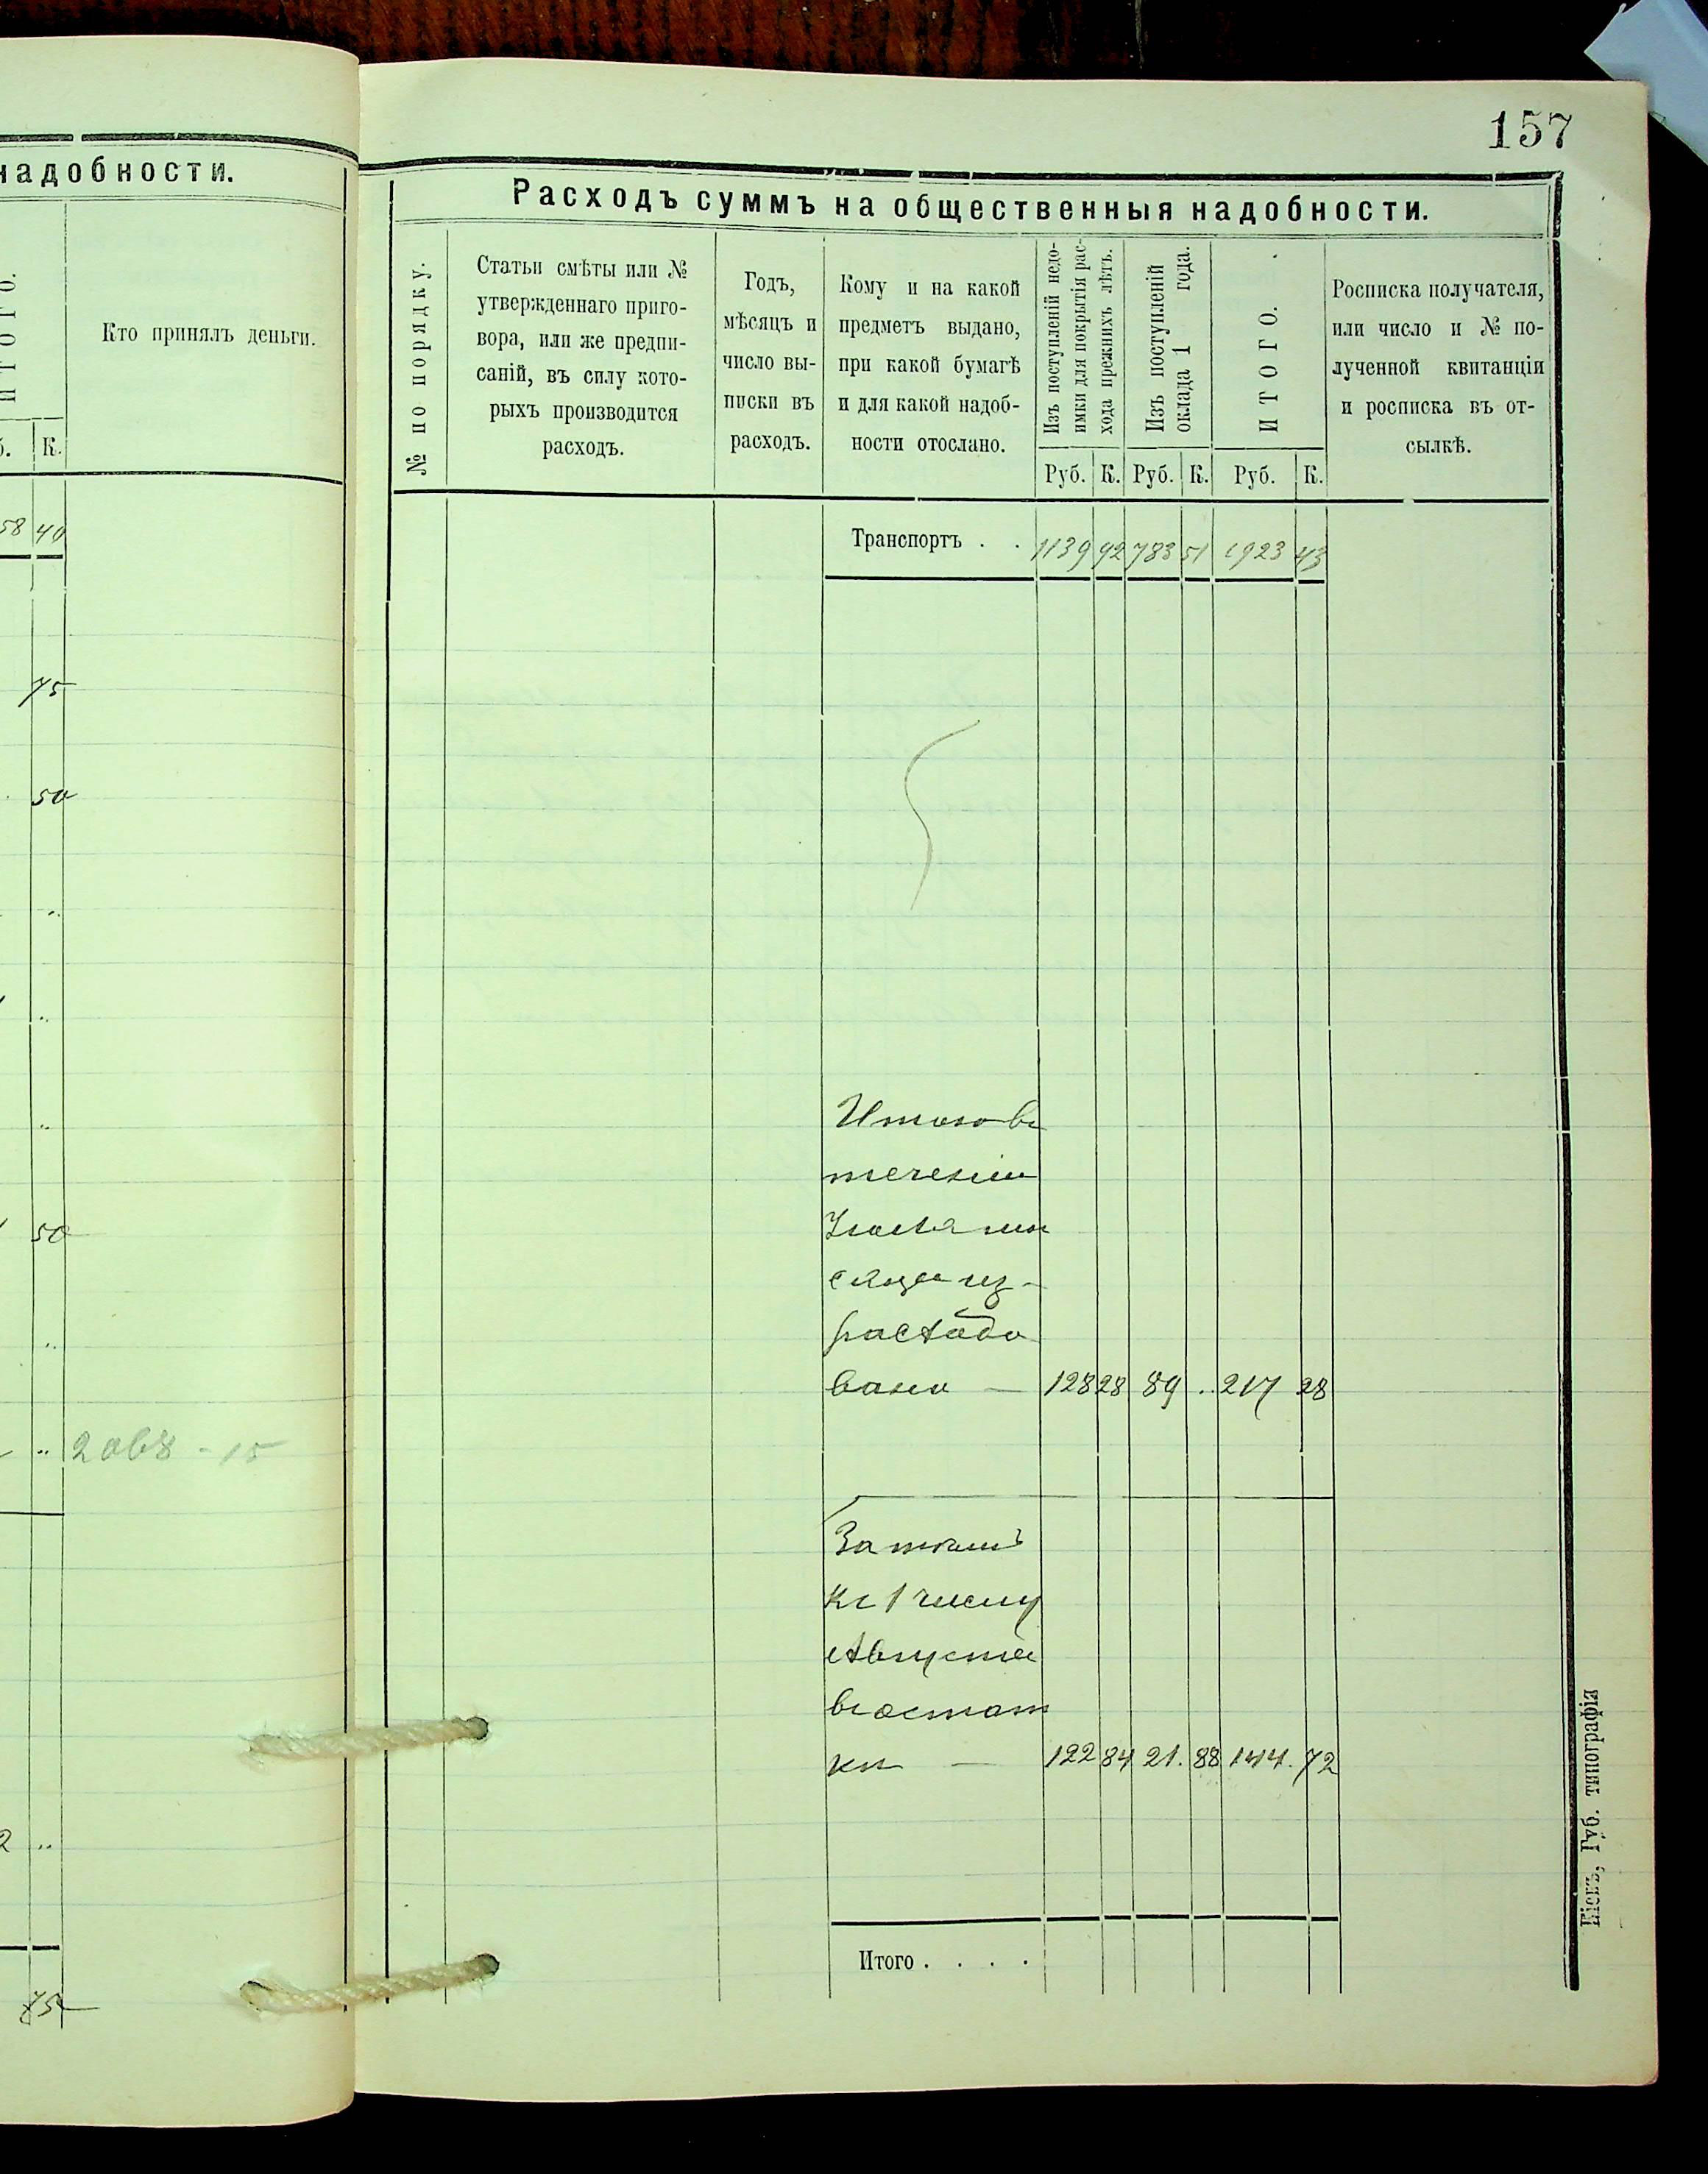 надобности.
И Т О Г О.
Кто принялъ деньги.
К.
58 40
75
50
50
2068 - 15
2
75
157
Расходъ суммъ на общественныя надобности.
№ по порядку.
Статьи смѣты или №
утвержденнаго приго-
вора, или же предпи-
саній, въ силу кото-
рыхъ производится
расходъ.
Годъ,
мѣсяцъ и
число вы-
писки въ
расходъ.
Кому и на какой
предметъ выдано,
при какой бумагѣ
и для какой надоб-
ности отослано.
Изъ поступленій недо-
имки для покрытія рас-
хода прежнихъ лѣтъ.
Изъ поступленій
оклада 1 года.
И Т О Г О.
Росписка получателя,
или число и № по-
лученной квитанціи
и росписка въ от-
сылкѣ.
Руб. К. Руб. К. Руб. К.
Транспортъ . . 1139 92 783 51 1923 43
Итого въ
теченіи
Іюля мѣ
сяца из-
расходо
вано — 128 28 89 .. 217 28
Затѣмъ
къ 1 числу
Августа
въ остат
кѣ — 122 84 21. 88 144. 72
Итого . . . .
Губ. типографія